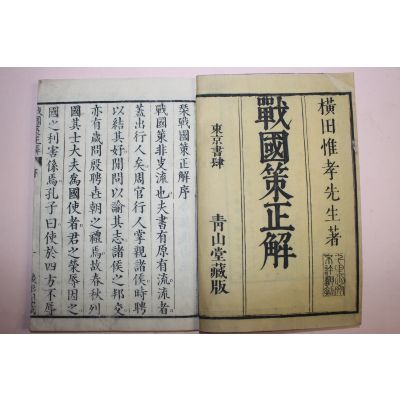 橫田惟孝先生著
戰國策正解
東京書肆
青山堂藏版
戰國策正解序
戰國策非史流也夫書有原有流流者
蓋出行人矣周官行人掌親諸侯時聘
以結其好閒問以諭其志諸侯之邦交
亦有歲問殷聘世朝之禮焉故春秋列
國其士大夫為國使者君之榮辱因之
國之利害係焉孔子曰使於四方不辱